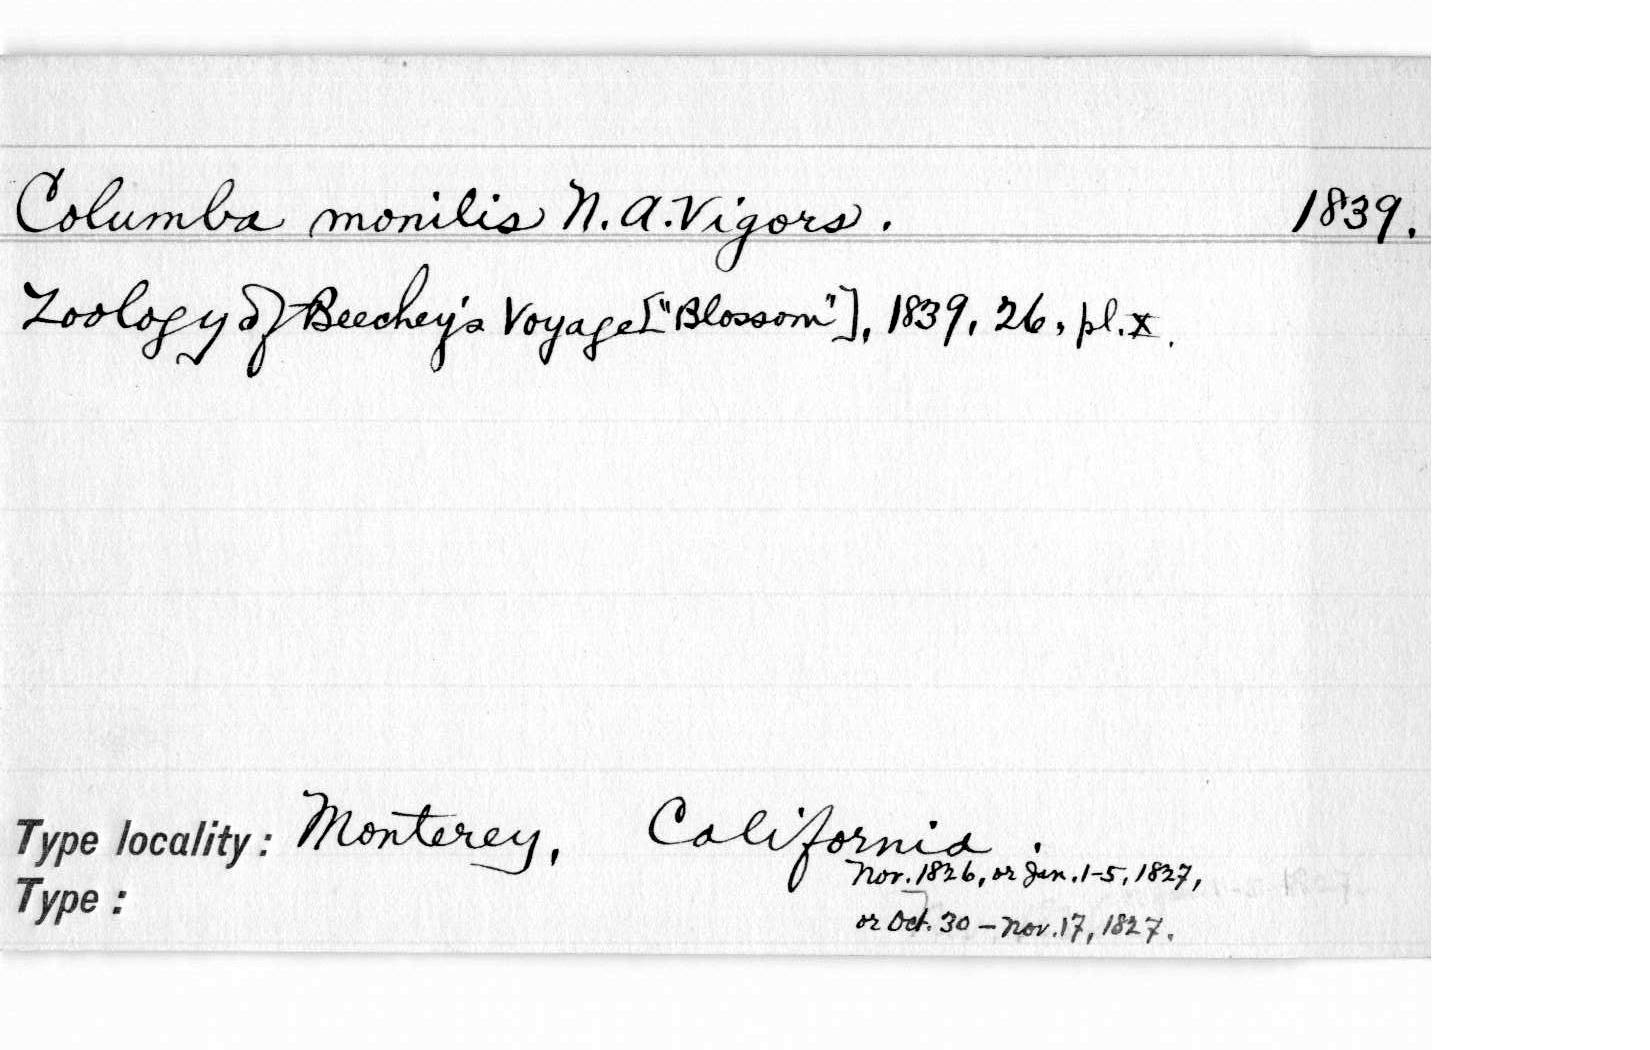 Columba monilis N.A.Vigors. 1839.
Zoology of Beechey's Voyage ["Blossom"], 1839, 26, pl.x.
Type locality: Monterey, California.
Nov. 1826, or Jan. 1-5, 1827,
Type:
or Oct. 30 - Nov. 17, 1827.